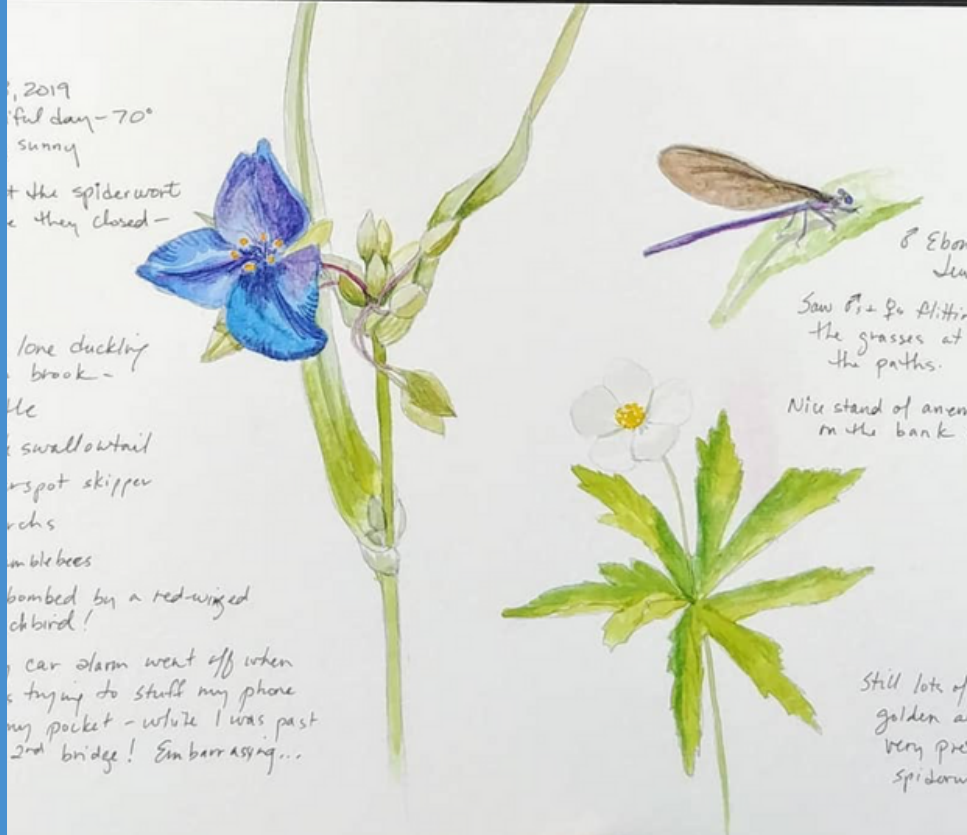 , 2019
iful day - 70°
sunny
t the spiderwort
e they closed -
lone duckling
brook -
tle
k swallowtail
rspot skipper
rchs
umblebees
bombed by a red-winged
ckbird!
y car alarm went off when
s trying to stuff my phone
my pocket - while I was past
2nd bridge! Embarrassing...
♂ Ebon
Jew
Saw ♂s + ♀s flittin
the grasses at
the paths.
Nice stand of anem
on the bank
Still lots of
golden a
very pre
spiderw